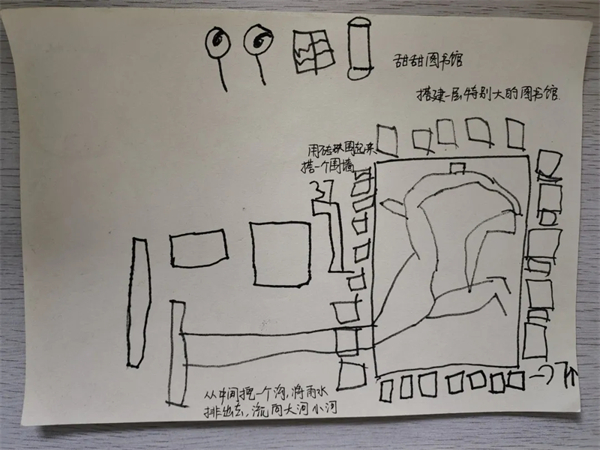 甜甜图书馆
搭建一层特别大的图书馆
用砖块围起来,
搭一个围墙
从中间挖一个沟,将雨水
排出去,流向大河小河